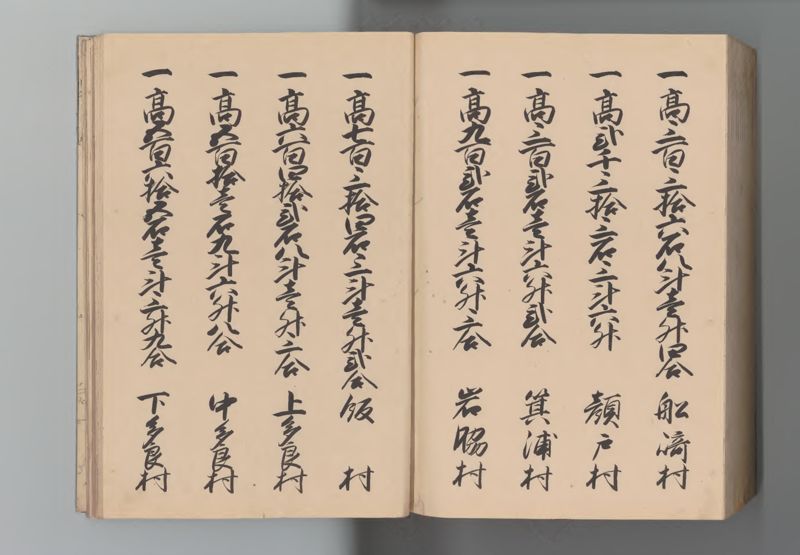 一高三百三拾六石八斗壱升四合 船﨑村
一高弐千三拾三石三斗六升 顔戸村
一高三百弐石壱斗六升弐合 箕浦村
一高九百弐石壱斗六升三合 岩脇村
一高七百三拾四石三斗壱升弐合 飯村
一高六百四拾弐石八斗壱升三合 上多良村
一高五百拾壱石九斗六升八合 中多良村
一高五百六拾五石壱斗三升九合 下多良村